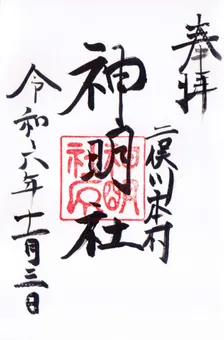 奉拝
二俣川本村
神明社
神明社印
令和六年十一月三日